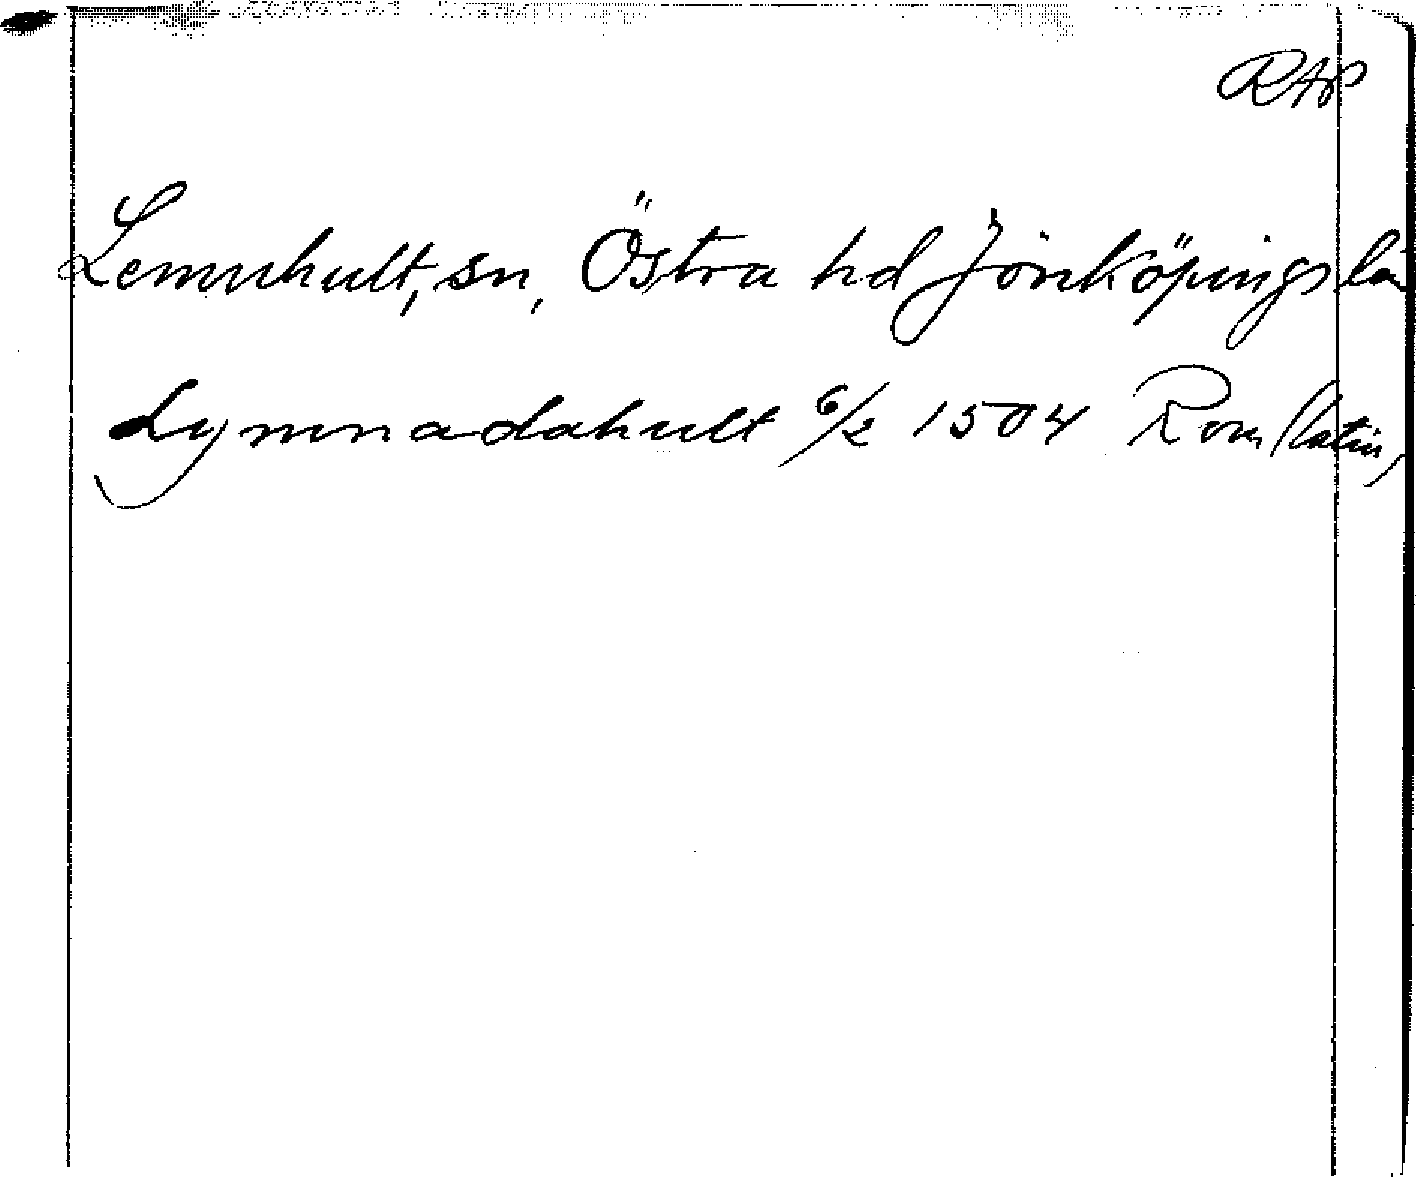 RAP
Lemnhult, sn, Östra hd Jönköpings lä
Lymnadahult 6/2 1504 Rom (latin)